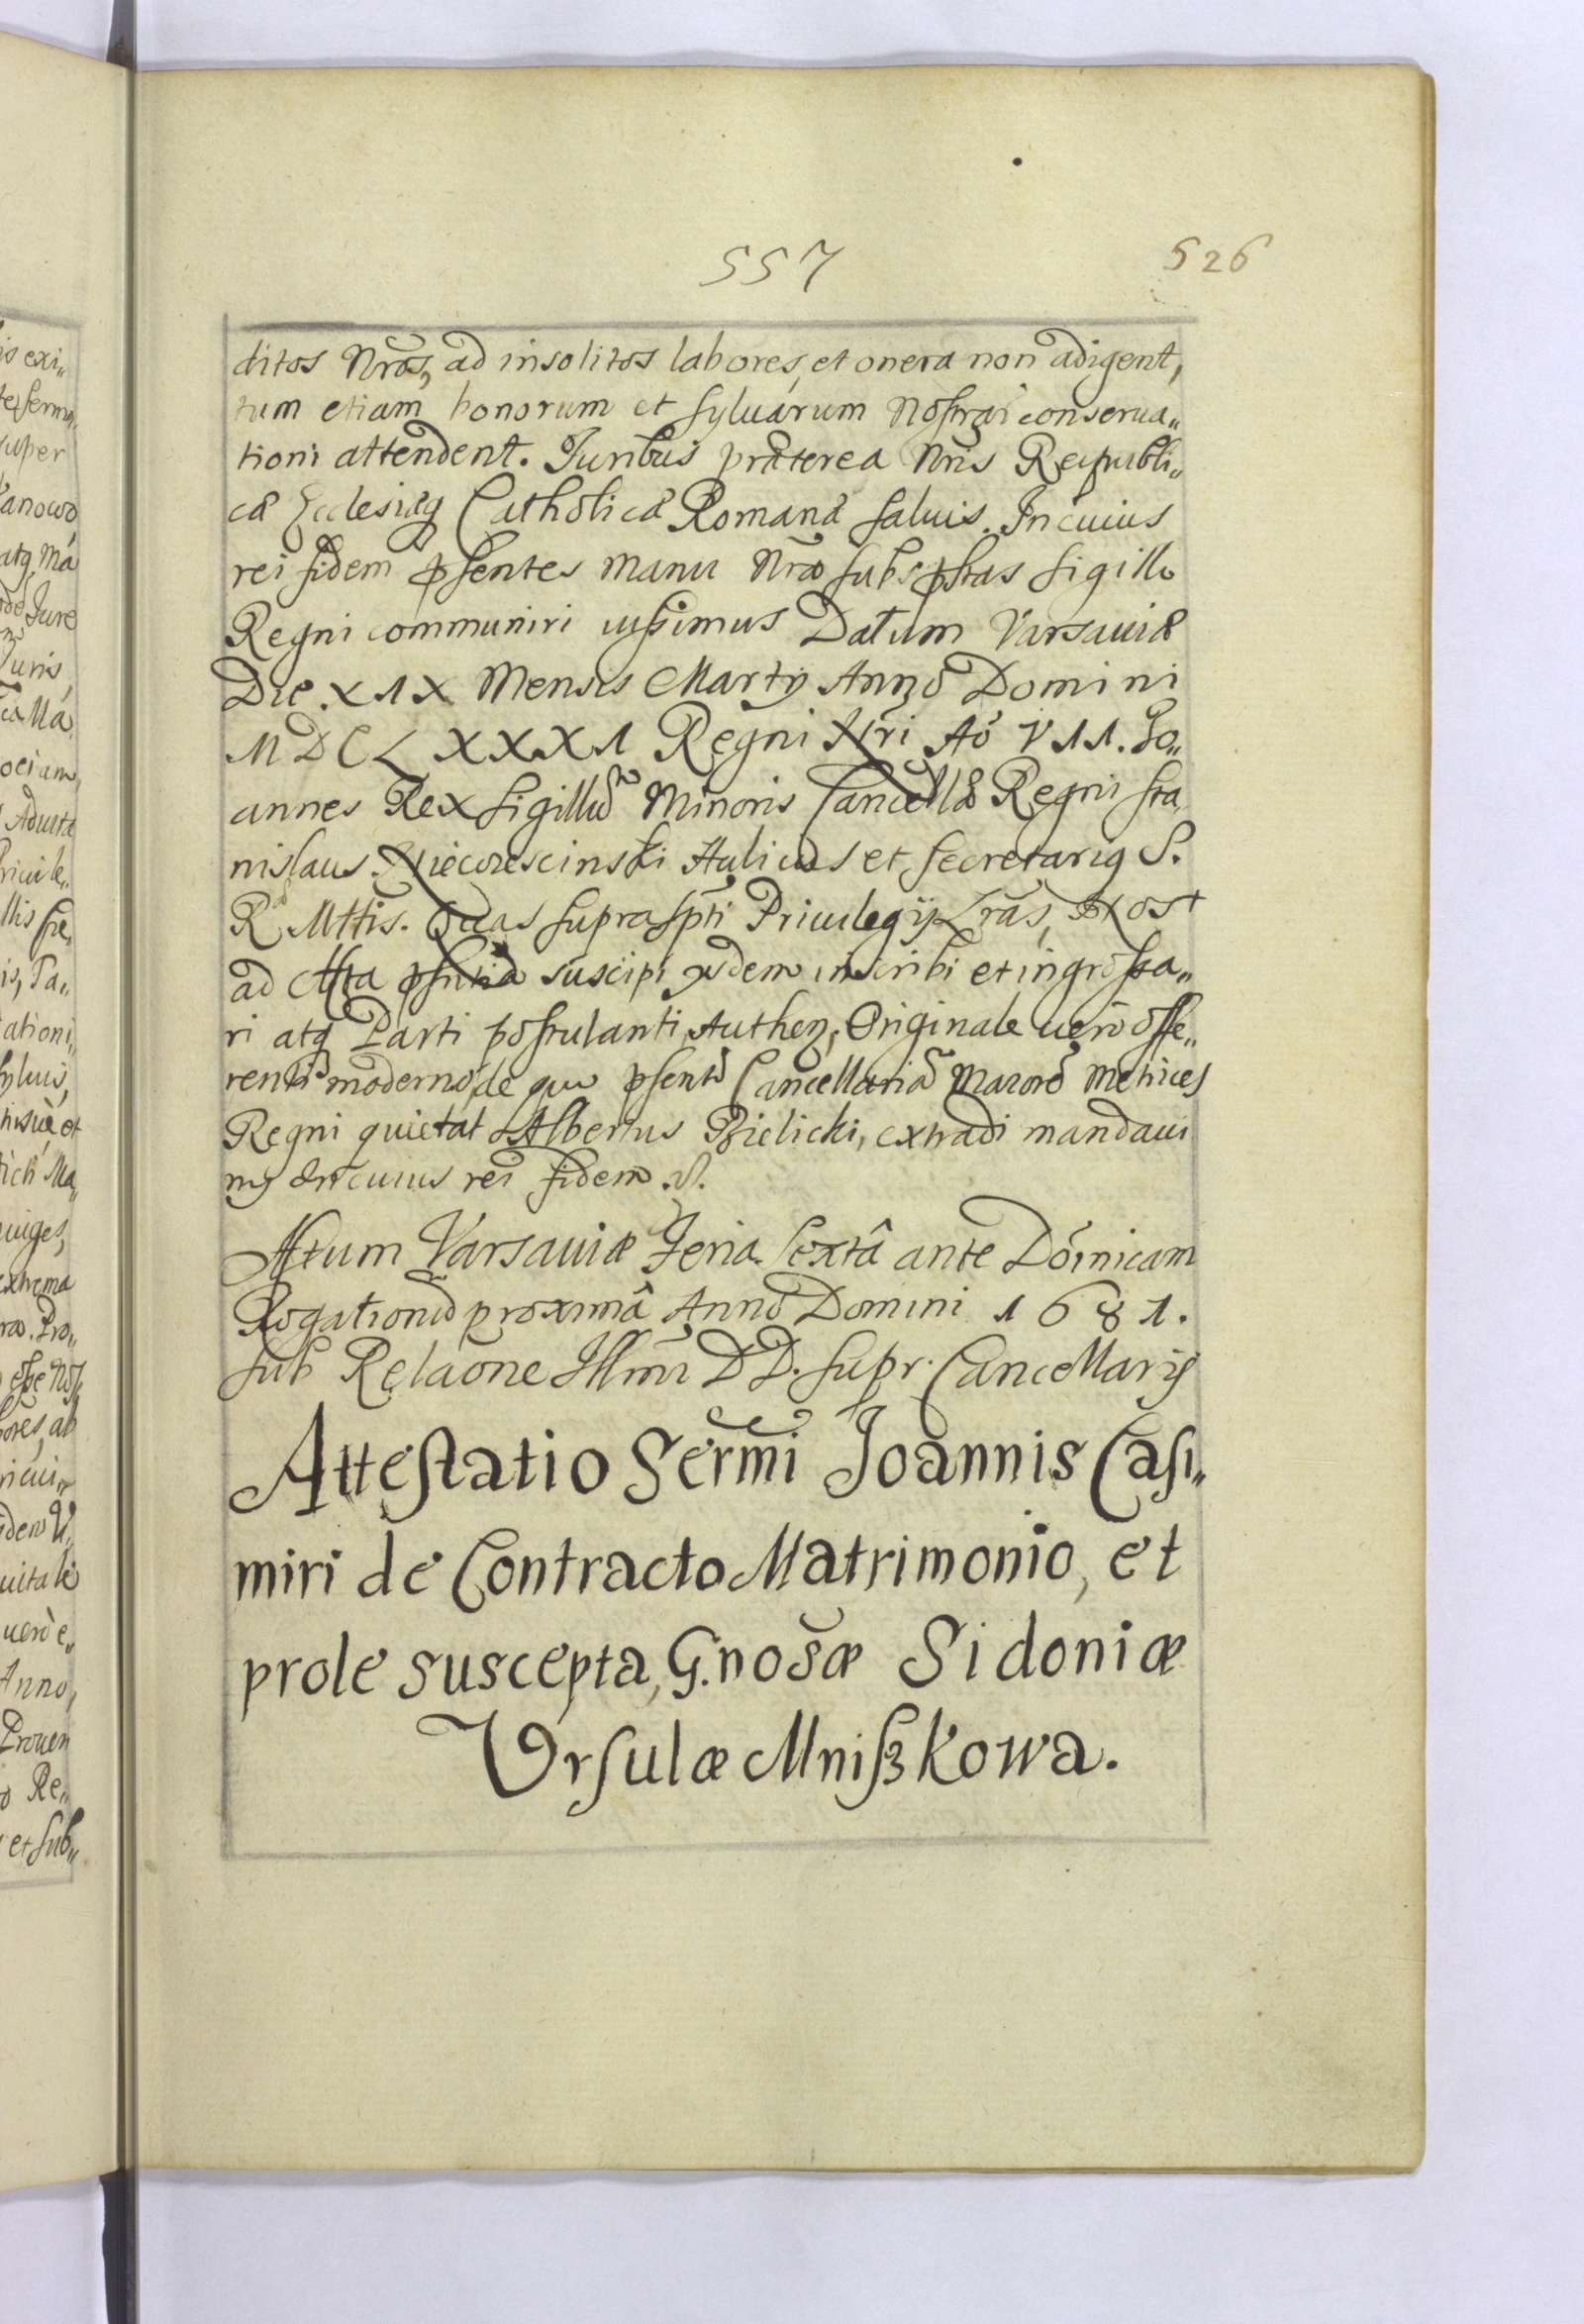 557
526
ditos Nr̃os, ad insolitos labores, et onera non adigent,
tum etiam bonorum et syluarum Nostrar conserua„
tioni attendent. Juribus præterea Nris Reipubli„
cæ Ecclesiæq Catholicæ Romanæ saluis. In cuius
rei fidem pſentes manu Nra subsptas sigillo
Regni communiri iussimus Datum Varsauiæ
Die XIX Mensis Martij Anno Domini
MDCLXXXI Regni Nri Aō VII. Jo„
annes Rex Sigillū Minoris Cancellæ Regni Sta
nislaus Niecorescinski Italicus et Secretariq S.
R Mttis. Quas suprascpti Priuilegij Lras, Nos
ad Acta pſntia suscipi, ijsdem inscribi et ingrossa„
ri atq Parti postulanti Authen, Originale uerò offe„
renti moderno, de quo psentē Cancellariā Maiorē Metrices
Regni quietat Albertus Bielicki, extradi mandaui
mq In cuius rei fidem.
Actum Varsauiæ Feria Sextâ ante Dōinicam
Rogationū proximâ Anno Domini 1681.
Sub Relãone Illmi DD. supr. Cancellarij
Atteſtatio Serm̃i Joannis Caſi„
miri de Contracto Matrimonio, et
prole suscepta, G.nosæ Sidoniæ
Vrſulæ Mniſzkowa.
is exi„
super
anowo
atq Ma
Jure
Juris,
Ma
ociam
Adulta
riuile„
llis
is, Ta„
ationi„
syluis,
et
Ma„
uiges,
extrema
Pro„
esse Nos
ores, ab
ricui„
idem V„
uitale
uerò e„
Anno,
Prouen
Re„
et sub„